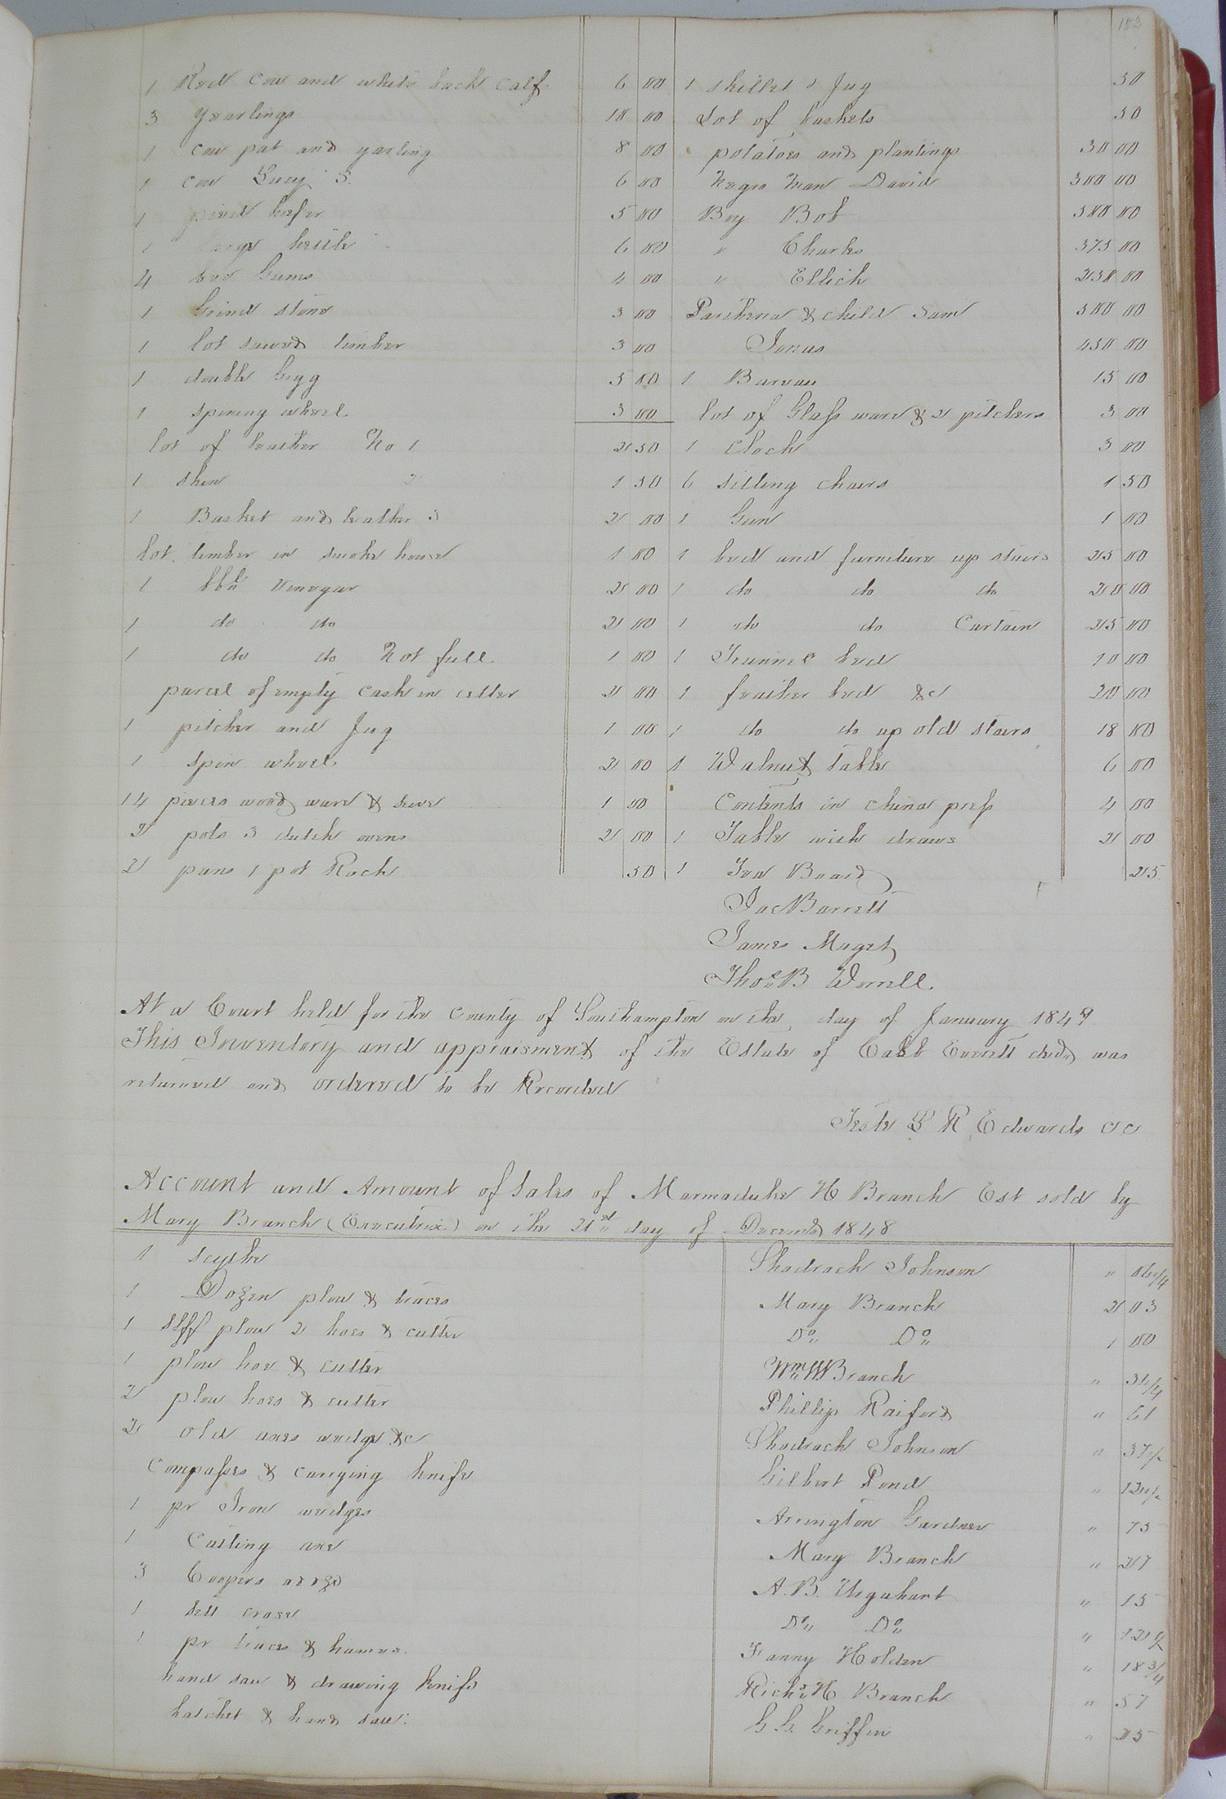 153
1 Red Cow and white back Calf 6 00
3 Yearlings 18 00
1 cow pat and yarling 8 00
1 cow Lucy 3 6 00
1 pied heifer 5 00
1 6 00
4 Gums 4 00
1 Grind stone 3 00
1 lot sawed timber 3 00
1 double Gigg 5 00
1 spining wheel 3 00
lot of leather No 1 2 50
1 skin 2 1 50
1 Basket and leather 3 2 00
lot timber in smoke house 1 00
1 bbl vinegar 2 00
1 do do 2 00
1 do do Not full 1 00
parcel of empty Cask in celler 2 00
1 pitcher and Jug 1 00
1 spin wheel 2 00
14 pieces wood ware & sive 1 00
2 pots 3 dutch ovens 2 00
2 pans 1 pot Rack 50
1 skillet 1 Jug 50
Lot of baskets 50
potatoes and plantings 30 00
Negro man David 300 00
Boy Bob 500 00
" Charles 375 00
" Ellick 250 00
& child Sam 500 00
Jonas 450 00
1 Bureau 15 00
lot of Glass ware & 2 pitchers 3 00
1 Clock 3 00
6 sitting chairs 1 50
1 Gun 1 00
1 bed and furniture up stairs 25 00
1 do do do 20 00
1 do do Curtain 25 00
1 Trunnel bed 10 00
1 feather bed &c 20 00
1 do do up old stairs 18 00
1 Walnut table 6 00
Contents in china press 4 00
1 Table with draws 2 00
1 Tea Board 25
Jac Barrett
James Maget
Thos B Worrell
At a Court held for the County of Southampton on the day of January 1849
This Inventory and appraisment of the Estate of Calib Everett decd was
returned and ordered to be Recorded
Teste L R Edwards CC
Account and Amount of Sales of Marmaduke H Branch Est sold by
Mary Branch (Executrix) on the 21st day of Decembr 1848
1 scythe Shadrach Johnson " 06 1/4
1 Dozen plow & traces Mary Branch 2 03
1 plow 2 hoes & cutter Do Do 1 00
1 plow hoe & cutter Wm W Branch " 31 1/4
2 plow hoes & cutter Phillip Raiford " 61
2 old axes wedge &c Shadrach Johnson " 37 1/2
Compasses & carving knife Gilbert Pond " 12 1/2
1 pr Iron wedges Arrington Gardner " 75
1 Casting axe Mary Branch " 27
3 Coopers A. B. Urquhart " 15
1 sett croze Do Do " 12 1/2
1 pr traces & hames Fanny Holden " 18 3/4
hand saw & drawing knife Richd H Branch " 57
hatchet & hand saw G G Griffin " 25